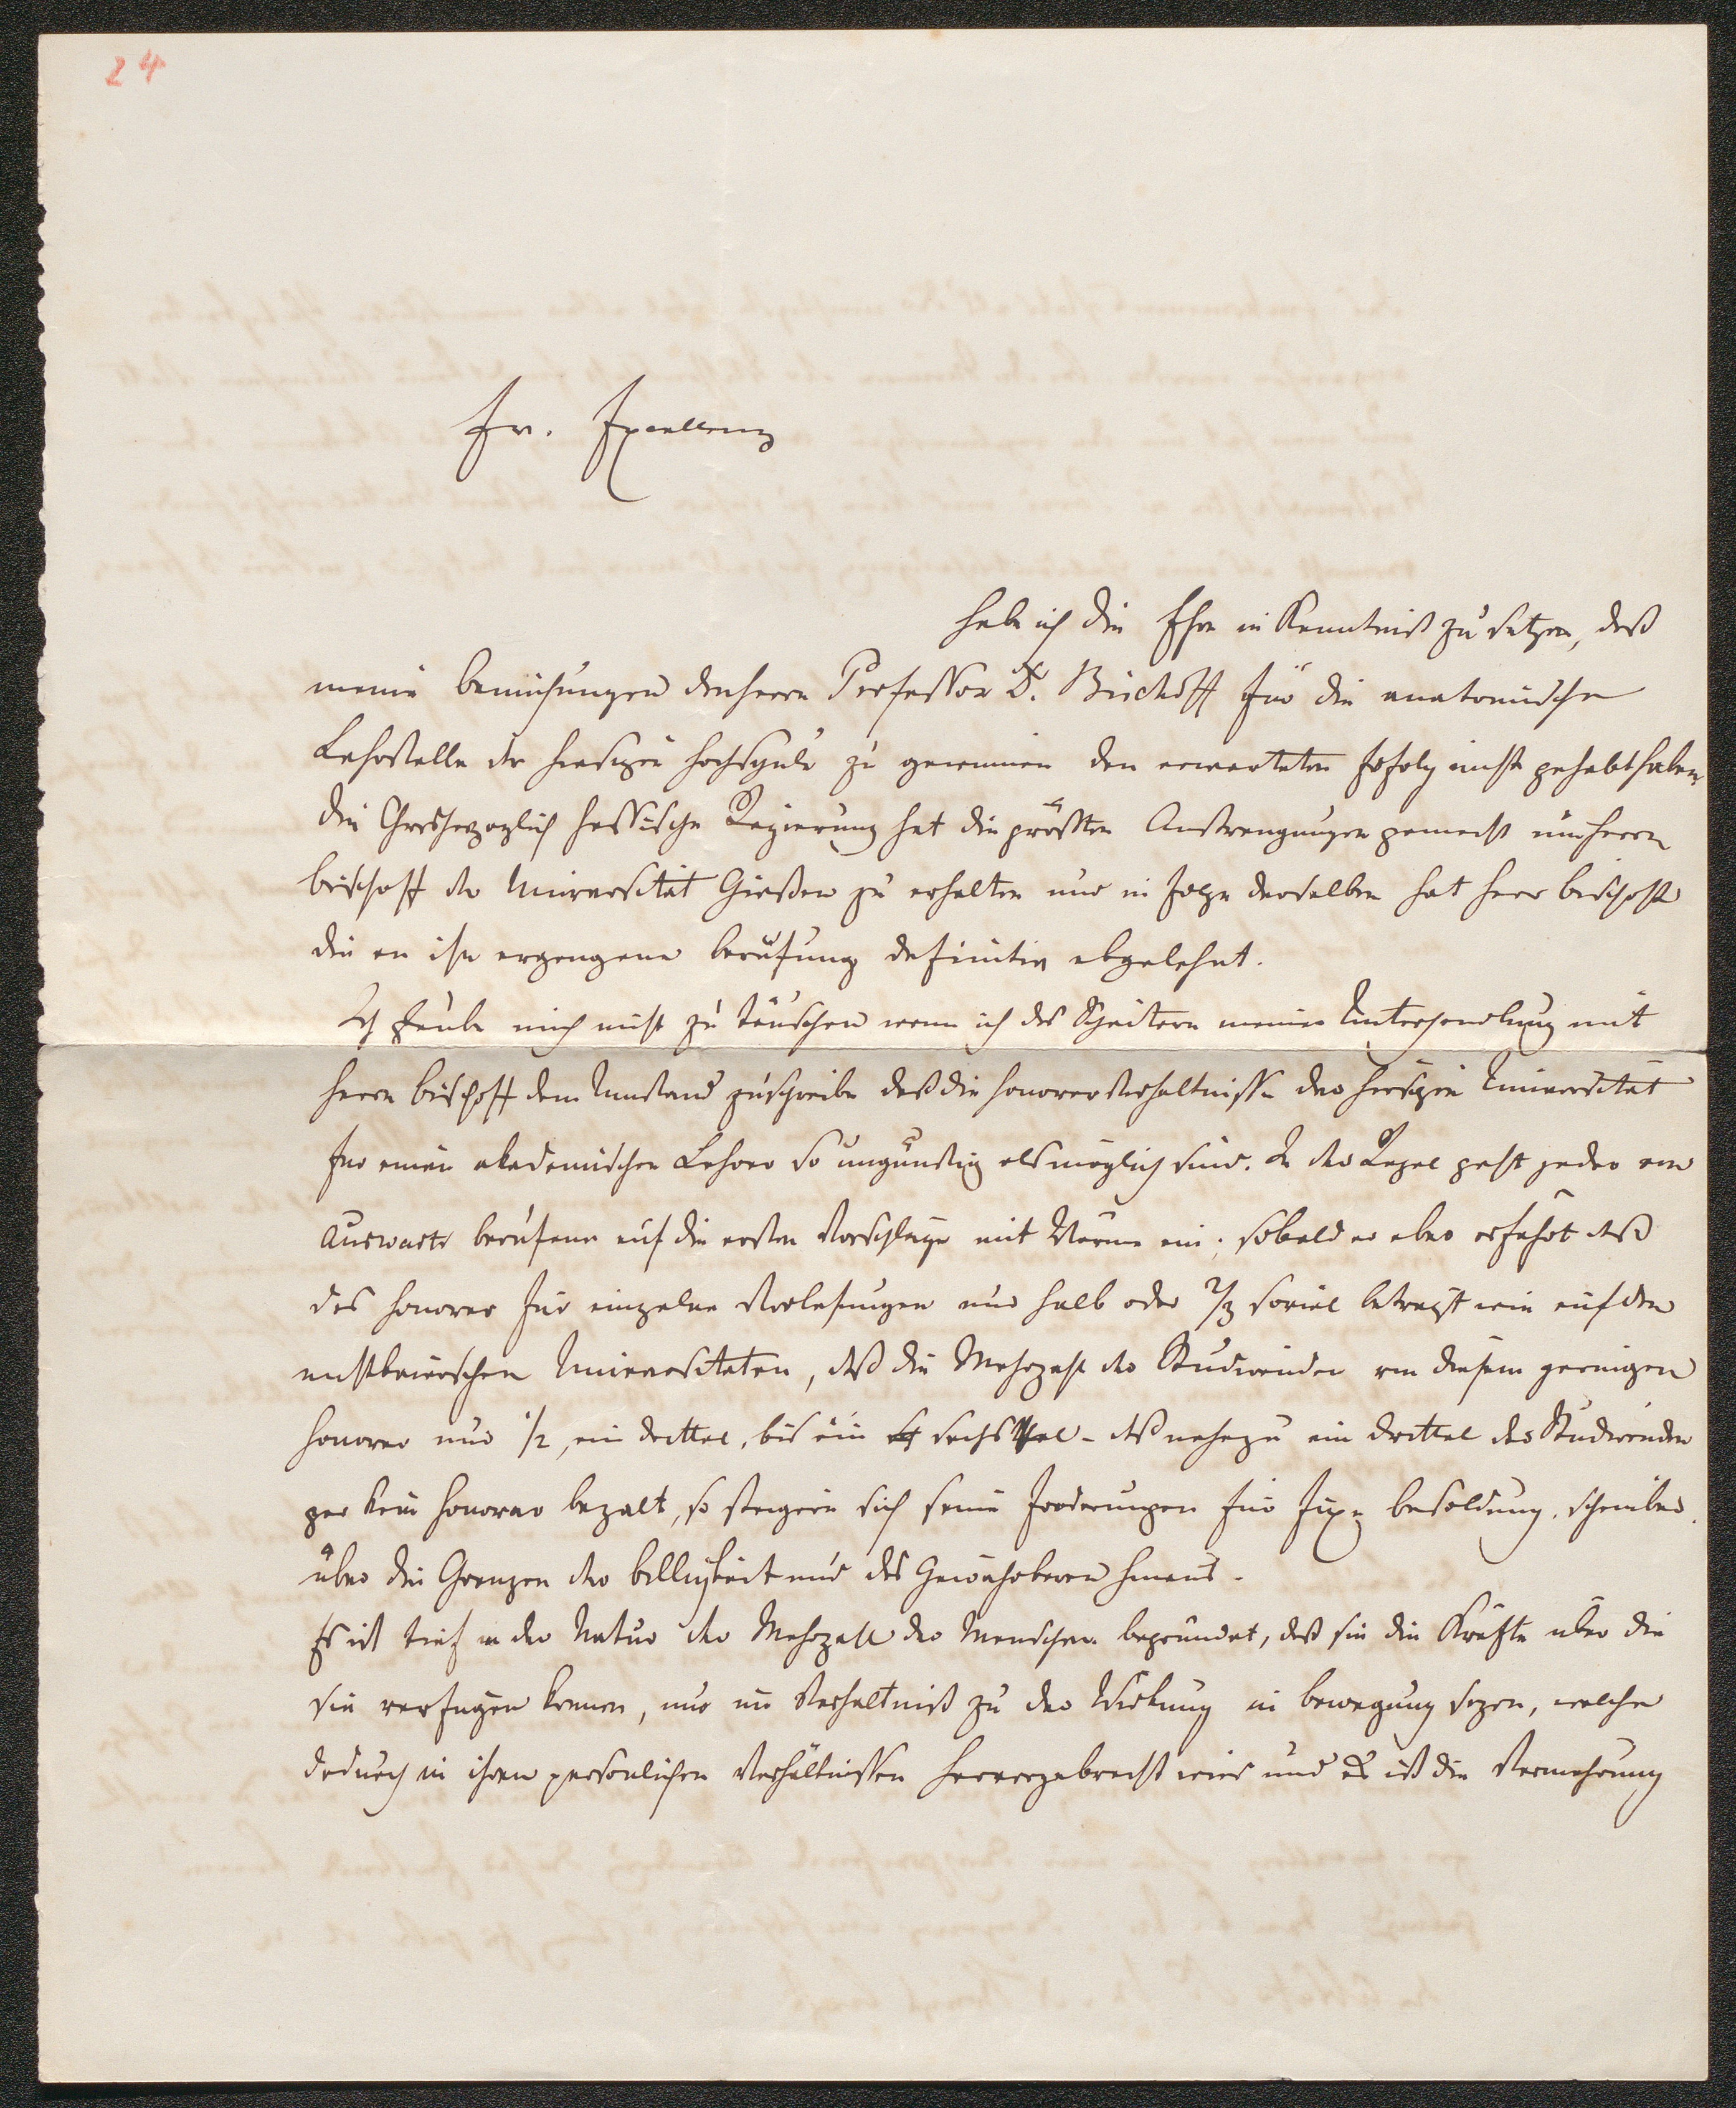 24
Ew. Excellenz
habe ich die Ehre in Kenntniß zu setzen, daß
meine Bemühungen den Herrn Professor Dr. Bischoff für die anatomische
Lehrstelle der hiesigen Hochschule zu gewinnen den erwarteten Erfolg nicht gehabt haben.
Die Großherzoglich hessische Regierung hat die größten Anstrengungen gemacht um Herrn
Bischoff der Universität Gießen zu erhalten und in Folge derselben hat Herr Bischoff
die an ihn ergangene Berufung definitiv abgelehnt.
Ich glaube mich nicht zu täuschen wenn ich das Scheitern meiner Unterhandlung mit
Herrn Bischoff dem Umstand zuschreibe daß die Honorarverhältnisse der hiesigen Universität
für einen akademischen Lehrer so ungünstig als möglich sind. In der Regel geht jeder von
Auswarts berufene auf die ersten Vorschläge mit Wärme ein; sobald er aber erfährt daß
das Honorar für einzelne Vorlesungen nur halb oder 2/3 soviel beträgt wie auf den
nichtbaierschen Universitaten, daß die Mehrzahl der Studirenden von diesem geringen
Honorar nur 1/2, ein drittel, bis ein sechsthel - daß nahezu ein drittel der Studirenden
gar kein Honorar bezalt, so steigern sich seine Forderungen für fixe Besoldung, scheinbar
über die Grenzen der Billigkeit und des Gewährbaren hinaus.
Es ist tief in der Natur der Mehrzall der Menschen begründet, daß sie die Kräfte über die
sie verfügen können, nur im Verhältniß zu der Wirkung in Bewegung sezen, welche
dadurch in ihren persönlichen Verhältnissen hervorgebracht wird und es ist die Vermehrung